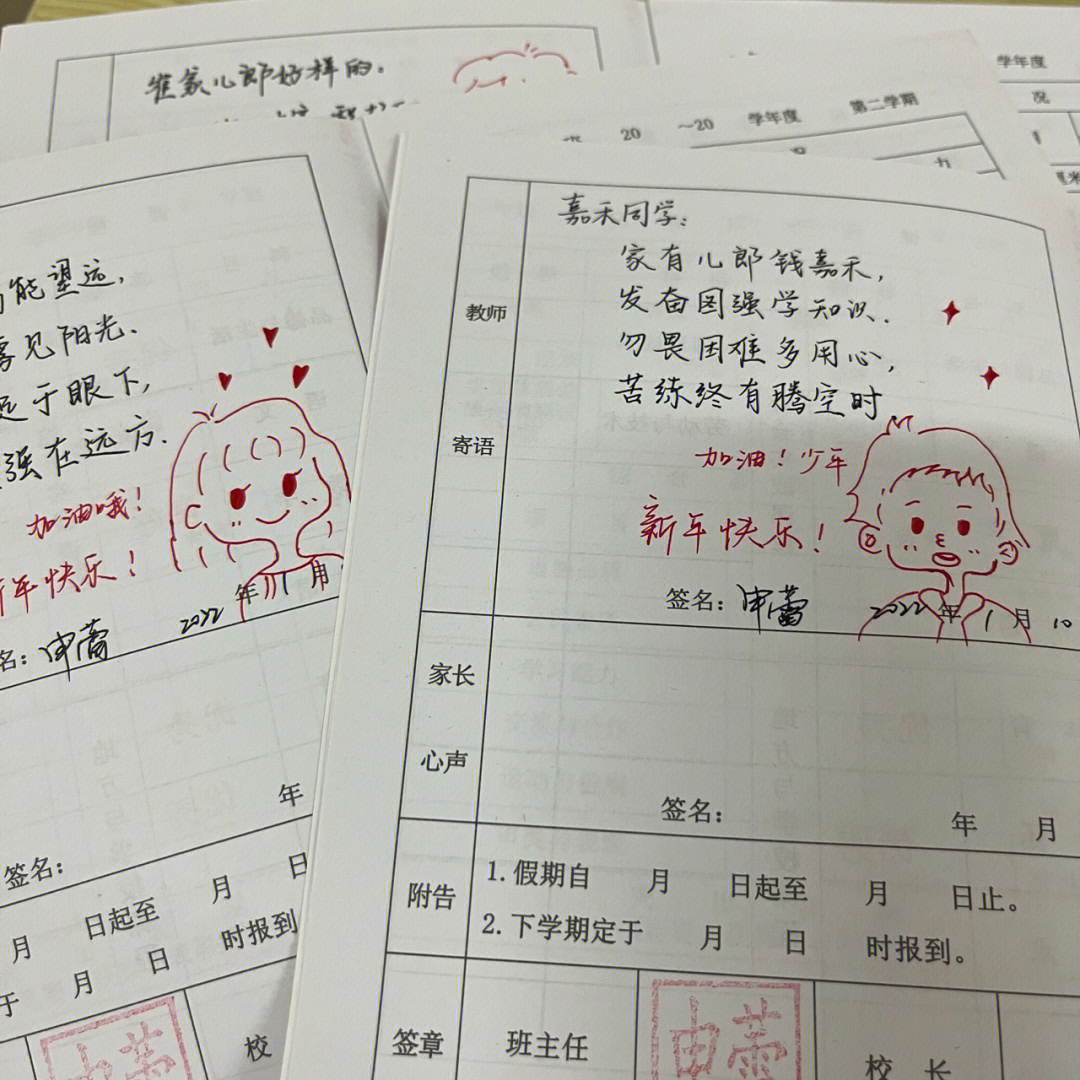 崔家儿郎好样的.
学年度
况
20 ~20 学年度 第二学期
力
厘米
能望远,
见阳光.
于眼下,
强在远方.
加油哦!
新年快乐!
名: 申蕾 2022 年 1 月
年
签名:
月 日起至 月 日
于 月 日 时报到
校
嘉禾同学:
家有儿郎钱嘉禾,
发奋图强学知识.
勿畏困难多用心,
苦练终有腾空时
加油!少年
新年快乐!
教师
寄语
签名: 申蕾 2022 年 1 月 10
家长
心声
签名: 年 月
附告
1.假期自 月 日起至 月 日止。
2.下学期定于 月 日 时报到。
签章
班主任
申蕾
校 长